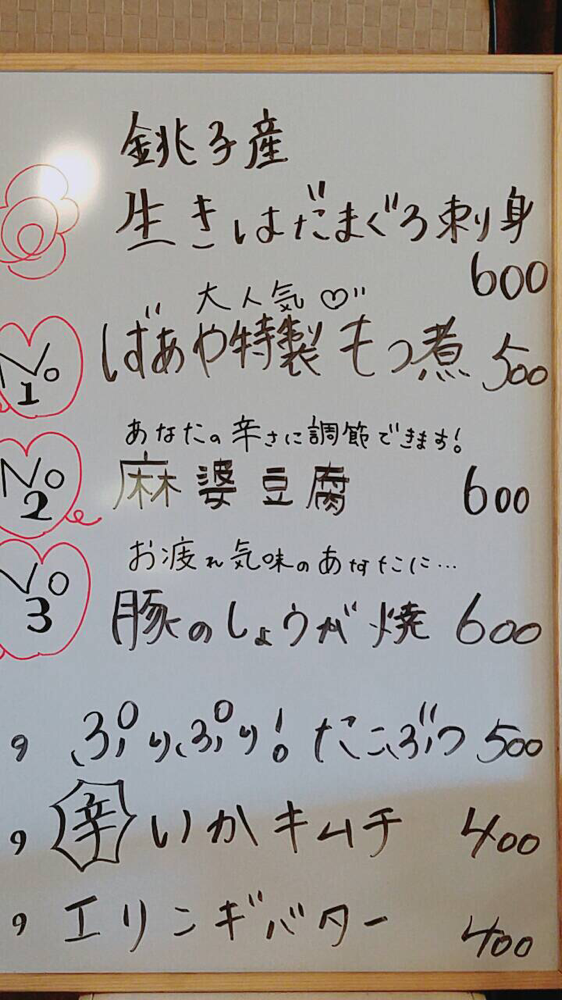 銚子産
生きはだまぐろ刺り身
600
大人気♡
No 1 ばあや特製もつ煮 500
あなたの辛さに調節できます!
No 2 麻婆豆腐 600
お疲れ気味のあなたに…
No 3 豚のしょうが焼 600
ぷりぷり!たこぶつ 500
辛 いかキムチ 400
エリンギバター 400